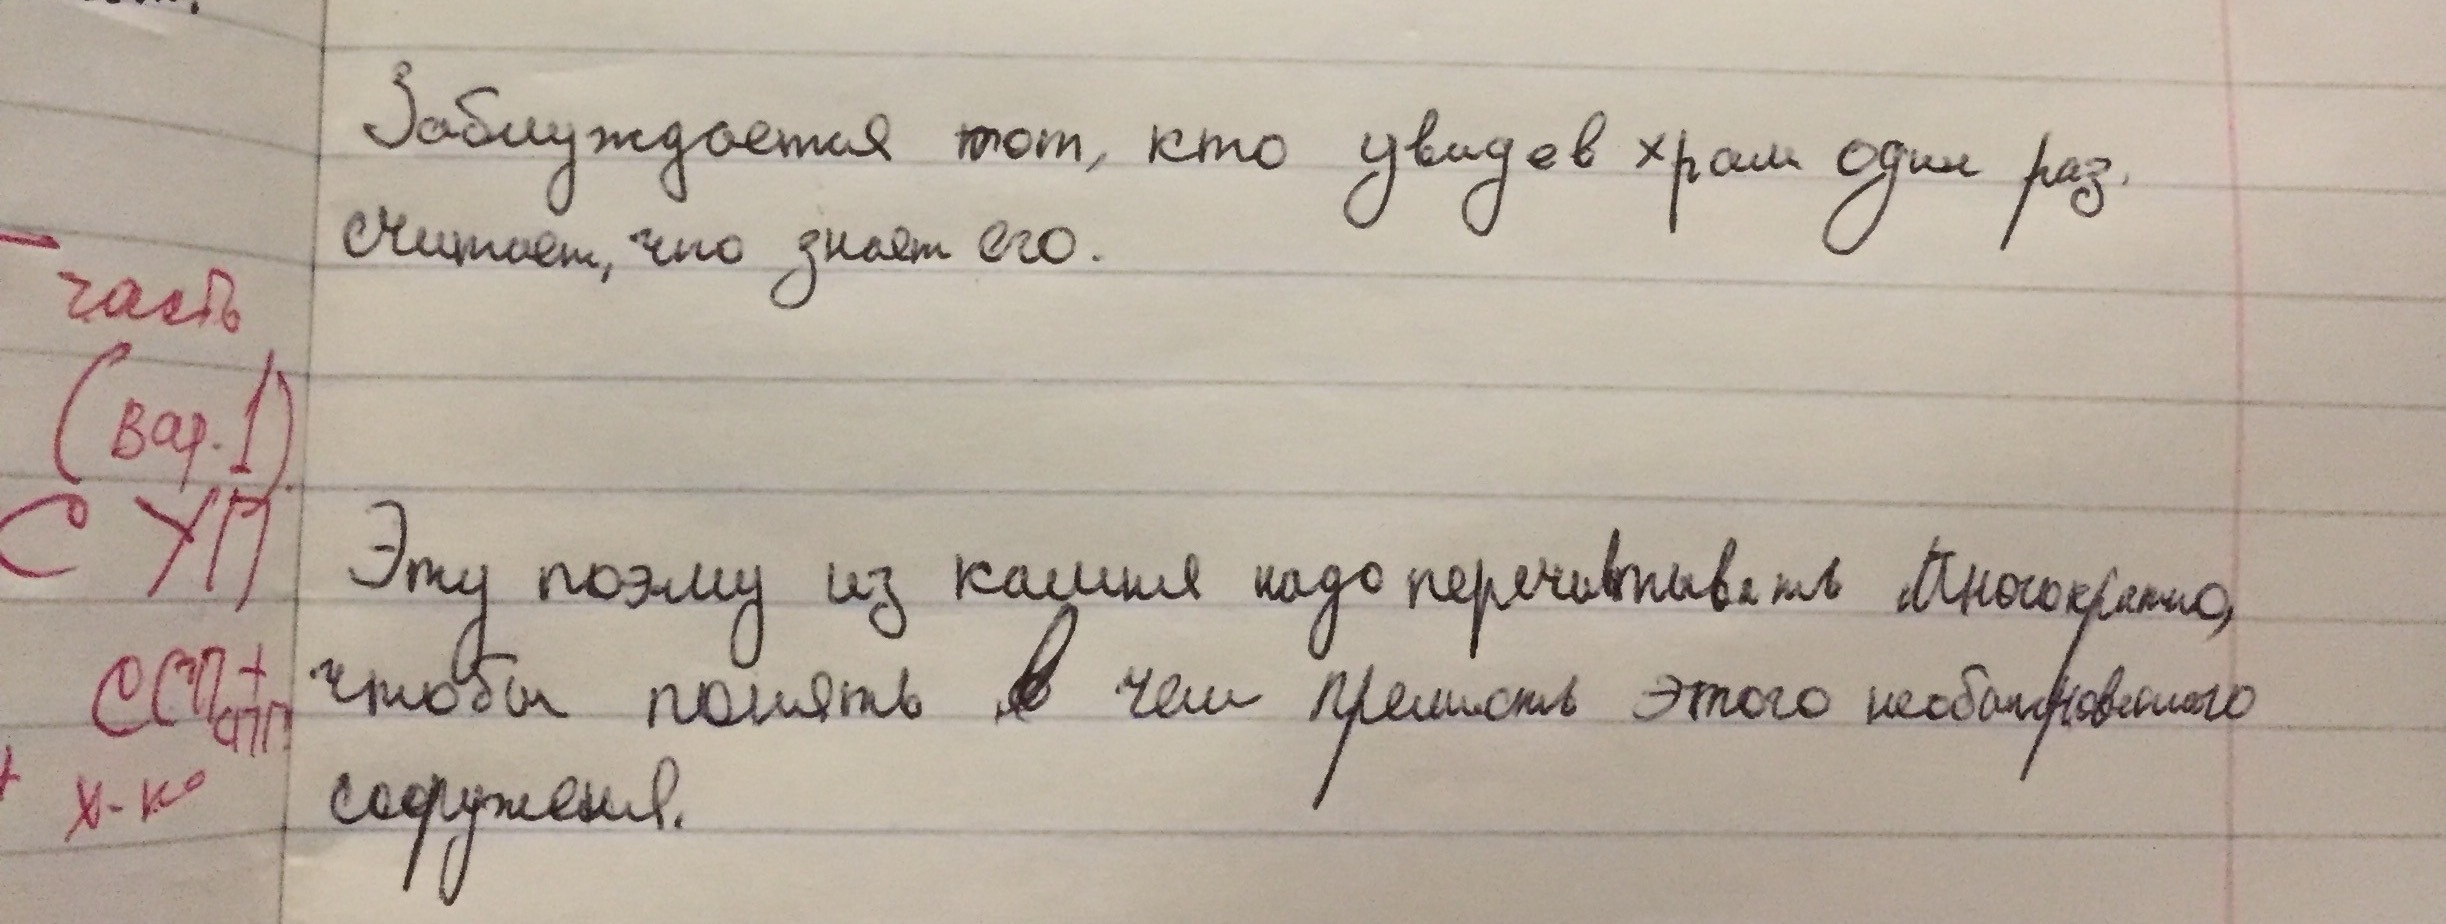 Заблуждается тот, кто увидев храм один раз.
считает, что знает его.
часть
(вар. 1)
С УП
Эту поэму из камня надо перечитывать многократно,
ССП+
СПП
чтобы понять в чем прелесть этого необыкновенного
+ х-ка
сооружения.